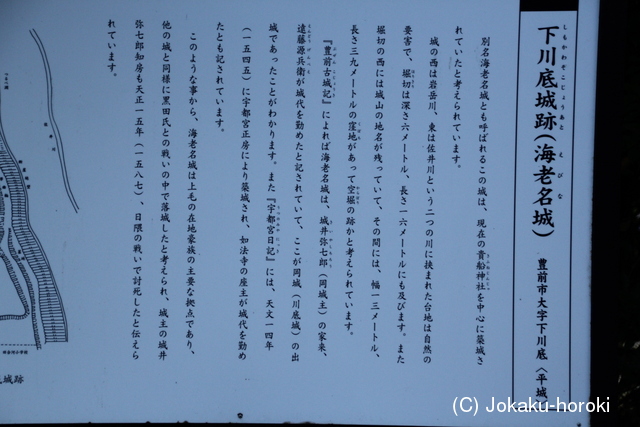 下川底城跡(海老名城)
しもかわぞこじょうあと
えびな
豊前市大字下川底〈平城〉
別名海老名城とも呼ばれるこの城は、現在の貴船神社を中心に築城さ
れていたと考えられています。
城の西は岩岳川、東は佐井川という二つの川に挟まれた台地は自然の
要害で、堀切は深さ六メートル、長さ一六メートルにも及びます。また
堀切の西には城山の地名が残っていて、その間には、幅一三メートル、
長さ三九メートルの窪地があって空堀の跡かと考えられています。
『豊前古城記』によれば海老名城は、城井弥七郎(岡城主)の家来、
遠藤源兵衛が城代を勤めたと記されていて、ここが岡城(川底城)の出
城であったことがわかります。また『宇都宮日記』には、天文一四年
(一五四五)に宇都宮正房により築城され、如法寺の座主が城代を勤め
たとも記されています。
このような事から、海老名城は上毛の在地豪族の主要な拠点であり、
他の城と同様に黒田氏との戦いの中で落城したと考えられ、城主の城井
弥七郎知房も天正一五年(一五八七)、日隈の戦いで討死したと伝えら
れています。
城跡
(C) Jokaku-horoki